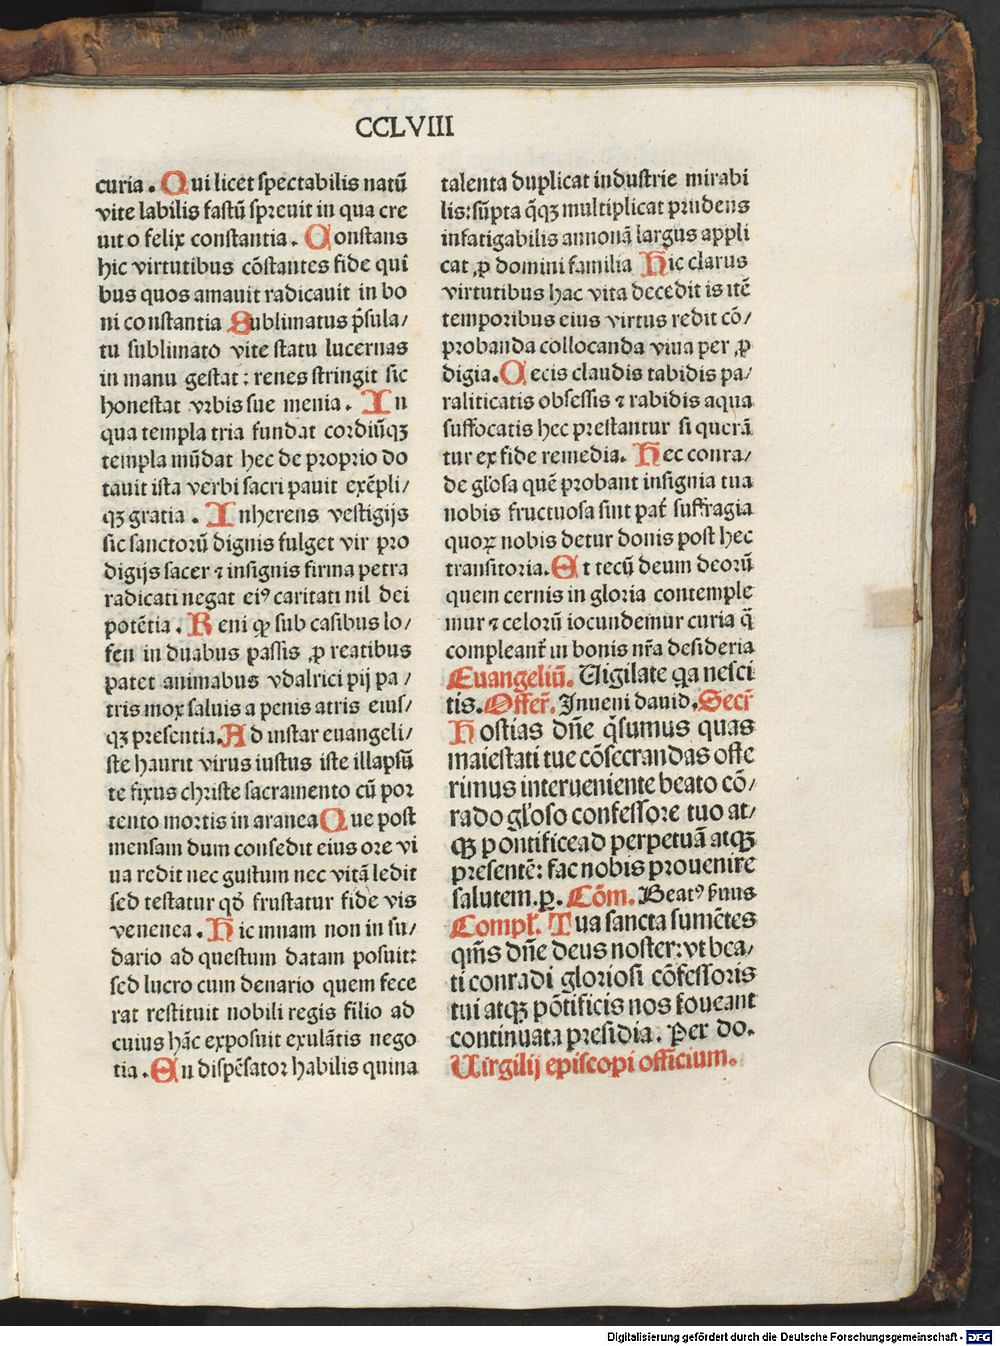 CCLVIII
curia. Qui licet spectabilis natū
vite labilis fastū spreuit in qua cre
uit o felix constantia. Constans
hic virtutibus cōstantes fide qui
bus quos amauit radicauit in bo
ni constantia Sublimatus p̄sula/
tu sublimato vite statu lucernas
in manu gestat: renes stringit sic
honestat vrbis sue menia. In
qua templa tria fundat cordiūqꝫ
templa mūdat hec de proprio do
tauit ista verbi sacri pauit exēpli/
qꝫ gratia. Inherens vestigijs
sic sanctorū dignis fulget vir pro
digijs sacer ⁊ insignis firma petra
radicati negat eiꝰ caritati nil dei
potētia. Reni qꝫ sub casibus lo/
fen in duabus passis ꝓ reatibus
patet animabus vdalrici pij pa/
tris mox saluis a penis atris eius/
qꝫ presentia. Ad instar euangeli/
ste haurit virus iustus iste illapsū
te fixus christe sacramento cū por
tento mortis in aranea Que post
mensam dum consedit eius ore vi
ua redit nec gustum nec vitā ledit
sed testatur qd̓ frustatur fide vis
venenea. Hic mnam non in su/
dario ad questum datam posuit:
sed lucro cum denario quem fece
rat restituit nobili regis filio ad
cuius hāc exposuit exulātis nego
tia. En dispēsator habilis quina
talenta duplicat industrie mirabi
lis: sūpta q̄qꝫ multiplicat prudens
infatigabilis annonā largus appli
cat ꝓ domini familia Hic clarus
virtutibus hac vita decedit is itē
temporibus eius virtus redit cō/
probanda collocanda viua per ꝓ
digia. Cecis claudis tabidis pa/
raliticatis obsessis ⁊ rabidis aqua
suffocatis hec prestantur si querā
tur ex fide remedia. Hec conra/
de gl̓osa quē probant insignia tua
nobis fructuosa sint pat̄ suffragia
quoꝝ nobis detur donis post hec
transitoria. Et tecū deum deorū
quem cernis in gloria contemple
mur ⁊ celorū iocundemur curia q̄
compleant̄ in bonis nr̄a desideria
Euangeliū. Uigilate qa nesci
tis. Offer̄. Inueni dauid. Secr̄
Hostias dn̄e q̄sumus quas
maiestati tue cōsecrandas offe
rimus interueniente beato cō/
rado gl̓oso confessore tuo at/
qꝫ pontifice ad perpetuā atqꝫ
presentē: fac nobis prouenire
salutem. p. Cōm. Beatꝰ s̄uus
Compl̄. Tua sancta sumētes
qm̄s dn̄e deus noster: vt bea/
ti conradi gloriosi cōfessoris
tui atqꝫ pōtificis nos foueant
continuata presidia. Per do.
Uirgilij episcopi officium.
Digitalisierung gefördert durch die Deutsche Forschungsgemeinschaft - DFG